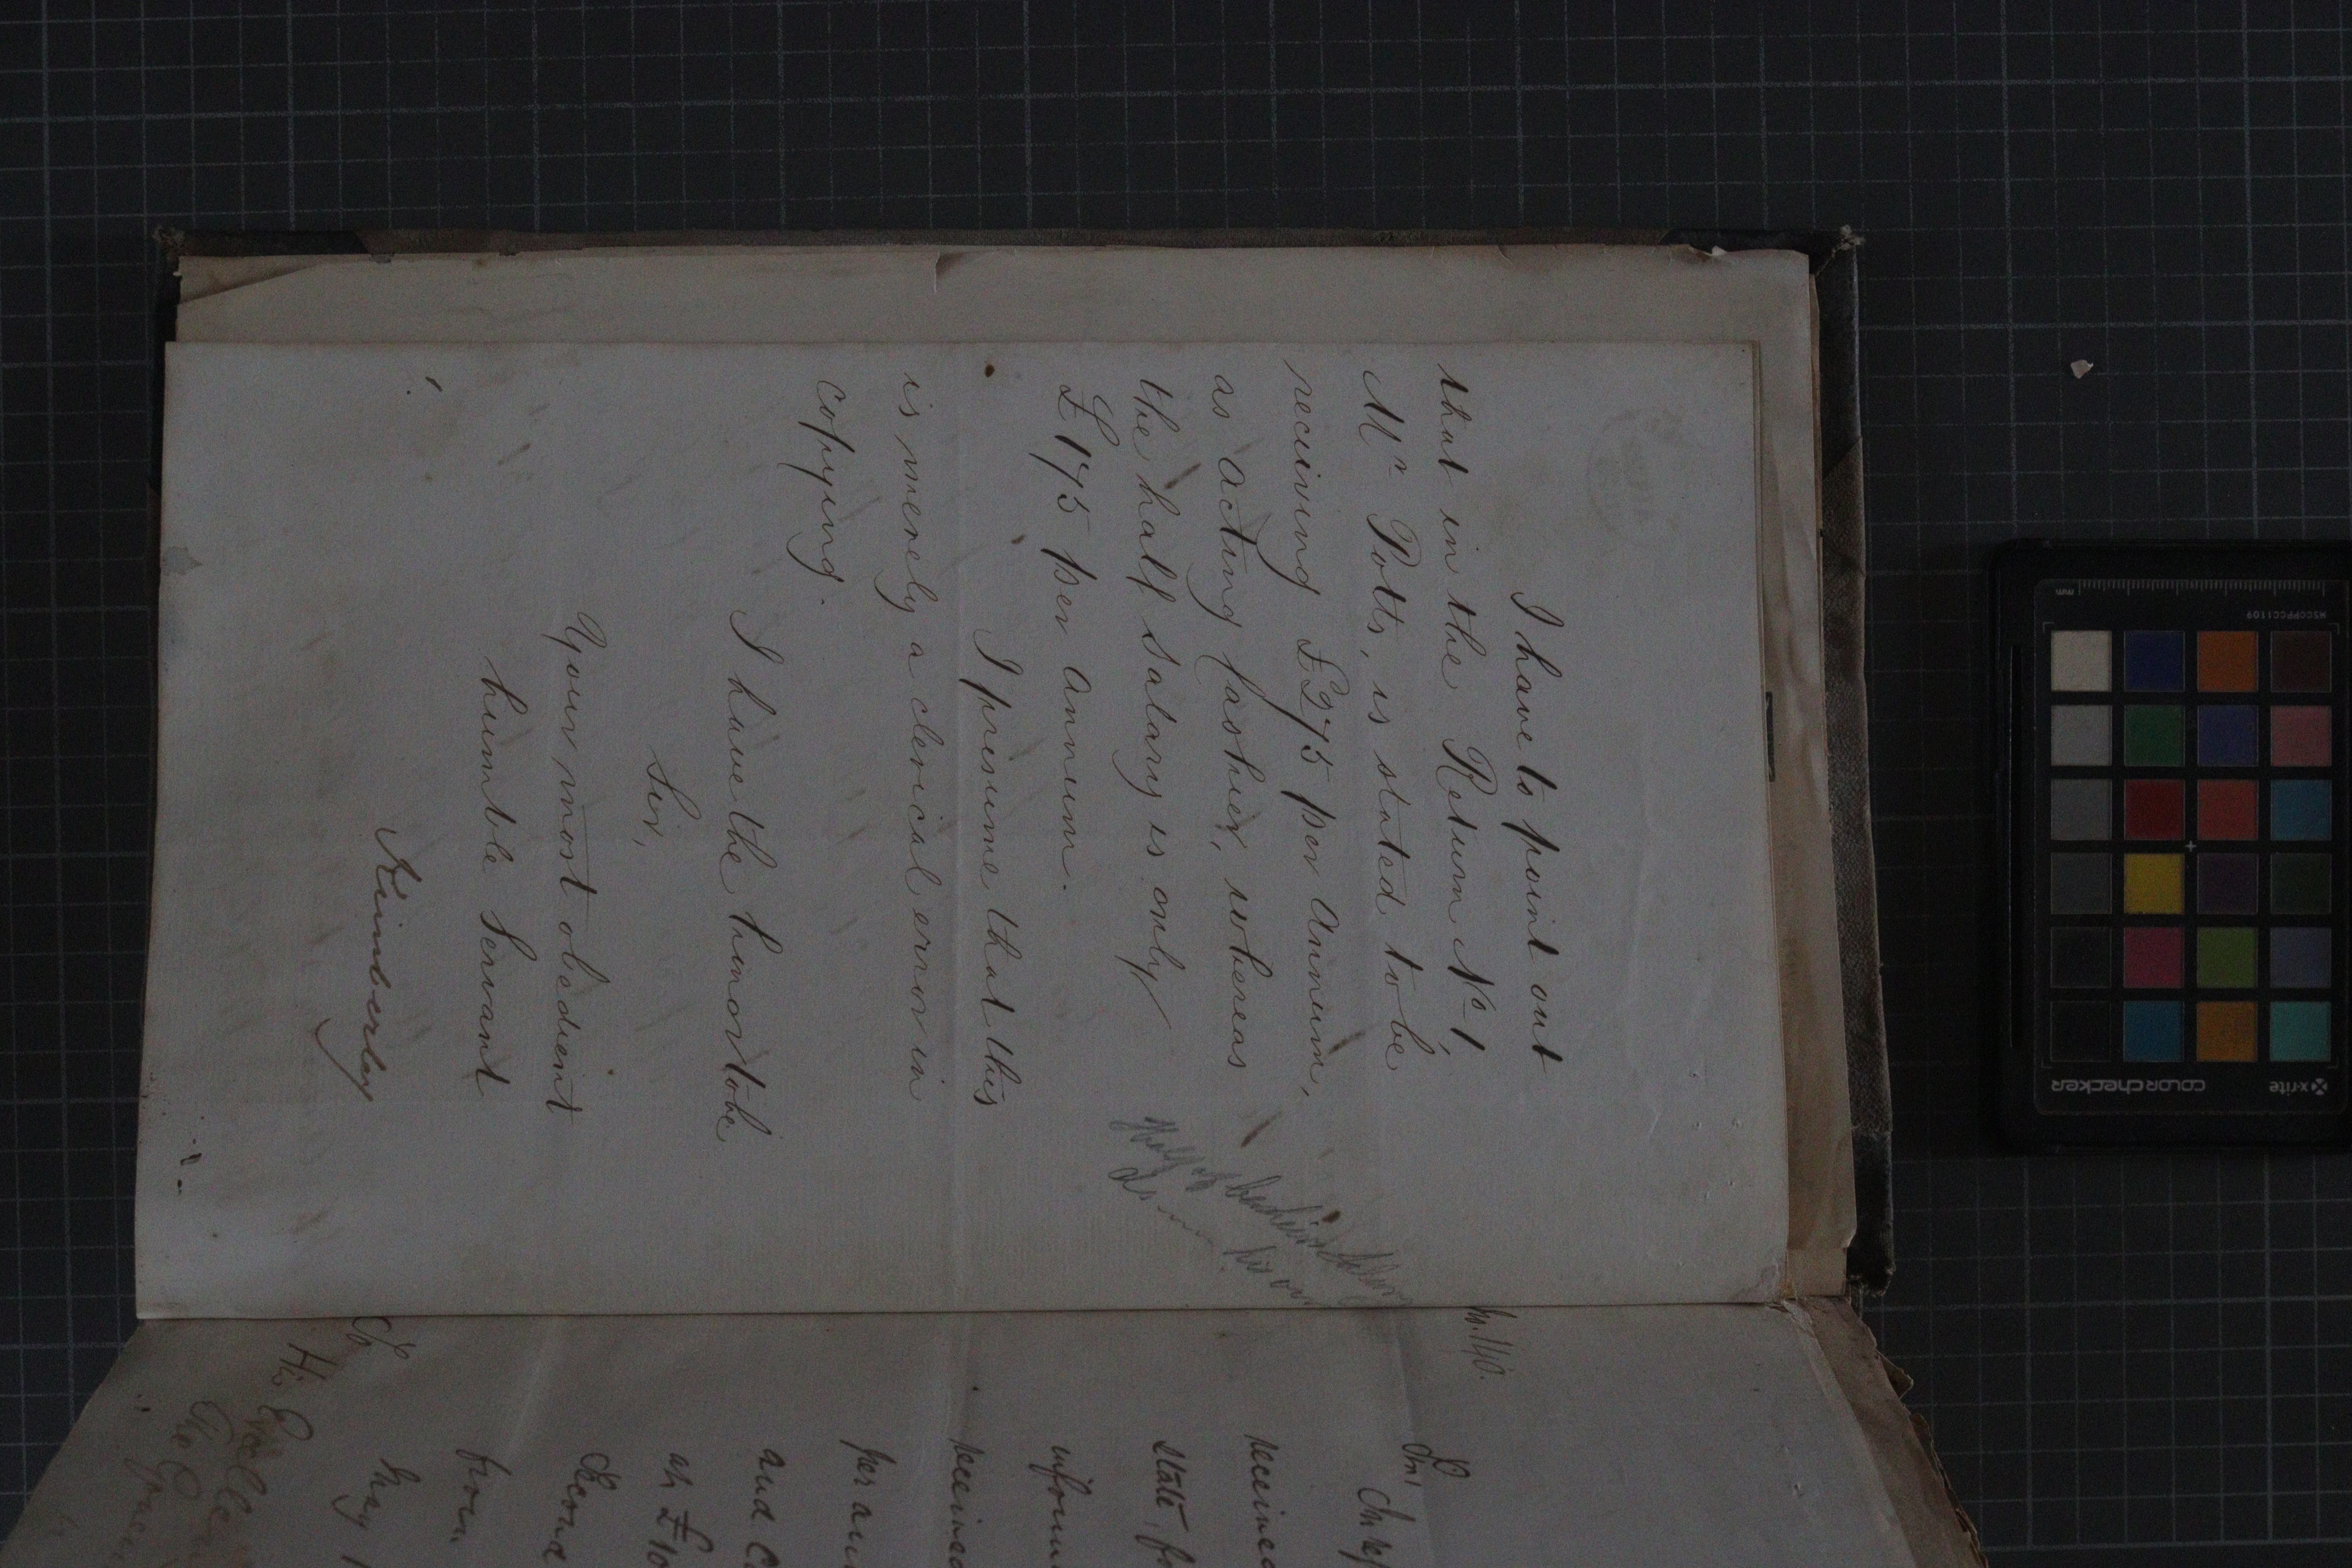 I have to point out
that in the Return No 1,
Mr Potts, is stated to be
receiving £275 per Annum,
as Acting Cashier, whereas
the half salary is only
£175 per Annum.
I presume that this
is merely a clerical error in
copying.
I have the honor to be
Sir,
Your most obedient
humble Servant
Kimberley
Half of
his own
No. 140.
Sir
received
state, fo
inform
received
per an
and C
at £10
Second
from
May
x-rite
colorchecker
MSCCPPCC1109
mm